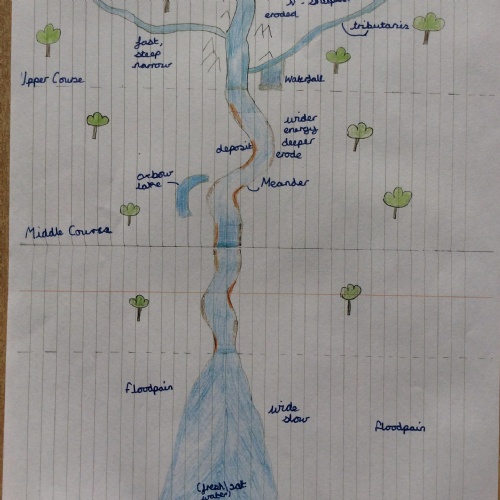 V-shaped
eroded
tributaris
fast,
steep
narrow
Upper Course
Waterfall
wider
energy
deeper
erode
deposit
oxbow
lake
Meander
Middle Course
floodpain
wide
slow
floodpain
(fresh/salt
water)